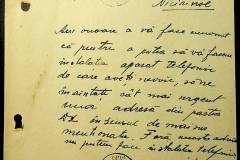 Am onoare a vă face cunoscut
că pentru a putea să vă facem
instalația aparat telefonic
de care aveți nevoie, să ne
înaintați cât mai urgent
una adresă din partea
Dv. în sensul de mai sus
menționate. Fără aceasta adresă
nu putem face instalația telefonică